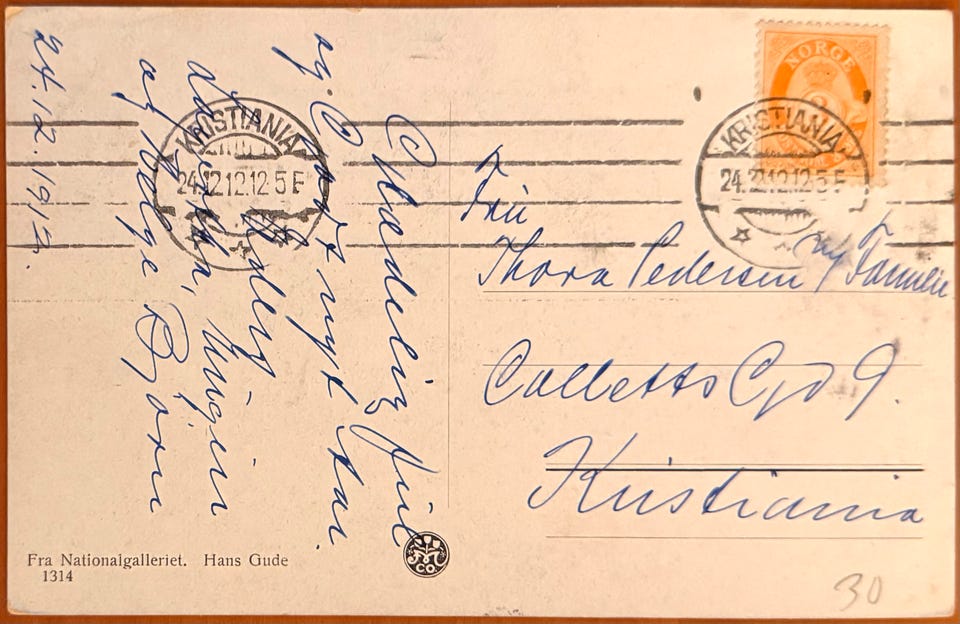 Glædelig Jul
og Godt nytt Aar.
Ludvig
og Helge
24.12.1912.
KRISTIANIA
24.12.12.12 5 E
NORGE
KRISTIANIA
24.12.12.12 5 E
Fru
Thora Pedersen m/ Familie
Colletts Gd 9.
Kristiania
Fra Nationalgalleriet. Hans Gude
1314
CO.
30